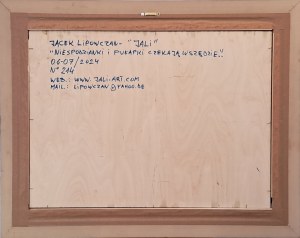 JACEK LIPOWCZAN - "JALI"
"NIESPODZIANKI I PUŁAPKI CZEKAJĄ WSZĘDZIE."
06-07/2024
N° 214
WEB.: WWW.JALI-ART.COM
MAIL.: LIPOWCZAN@YAHOO.DE